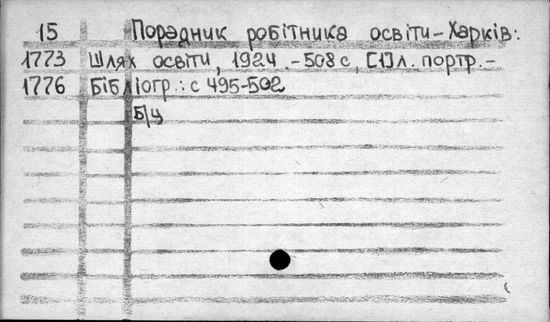 15 Порадник робітника освіти-Харків:
1773 Шлях освіти, 1924.-508 с, [1]л. портр.-
1776 Бібліогр.: с 495-502
Б/ц